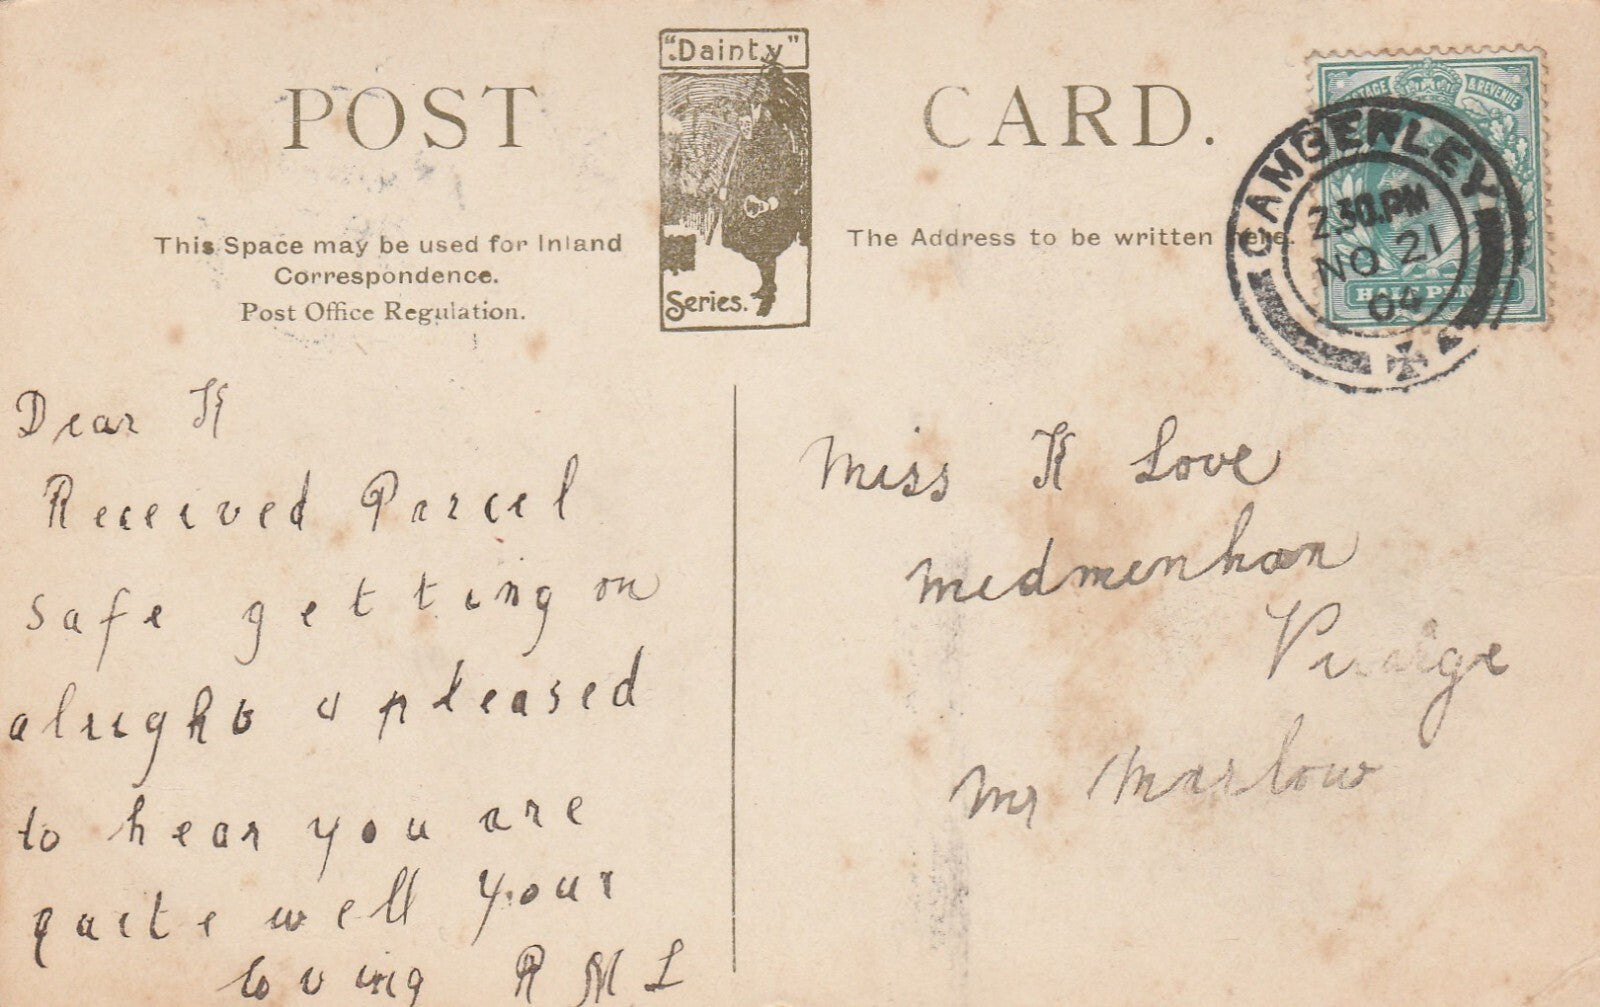 POST CARD.
"Dainty"
Series.
This Space may be used for Inland
Correspondence.
Post Office Regulation.
The Address to be written here.
POSTAGE & REVENUE
HALF PENNY
CAMBERLEY
2.30.PM
NO 21
04
Dear K
Received Parcel
safe getting on
alright & pleased
to hear you are
quite well your
loving R M L
Miss K Love
Medmenhan
Vicarage
Nr Marlow